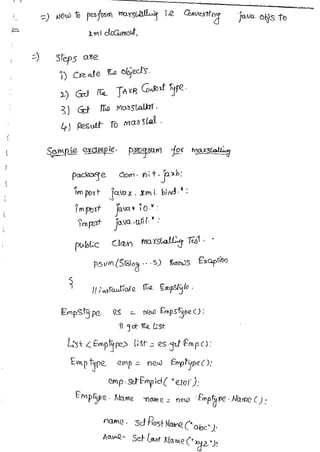 =) Now to perform marshalling i.e Converting java objs to
xml document.
=) Steps are
1) Create the objects.
2) Get the JAXB Context Type.
3) Get the Marshaller.
4) Result to marshal.
Sample example. program for marshalling
package com.nit.jaxb;
import javax.xml.bind.*;
import java.io.*;
import java.util.*;
public Class marshalling Test.
psvm (String ...s) throws Exception
{
// instantiate the EmpStype.
EmpStype es = new EmpStype();
// get the list
List <Emptype> list = es.get Emp();
Emptype emp = new Emptype();
emp.setEmpid(
Emptype.Name name = new Emptype.Name();
name.setFirstName("abc");
name.Set Last Name("xyz");